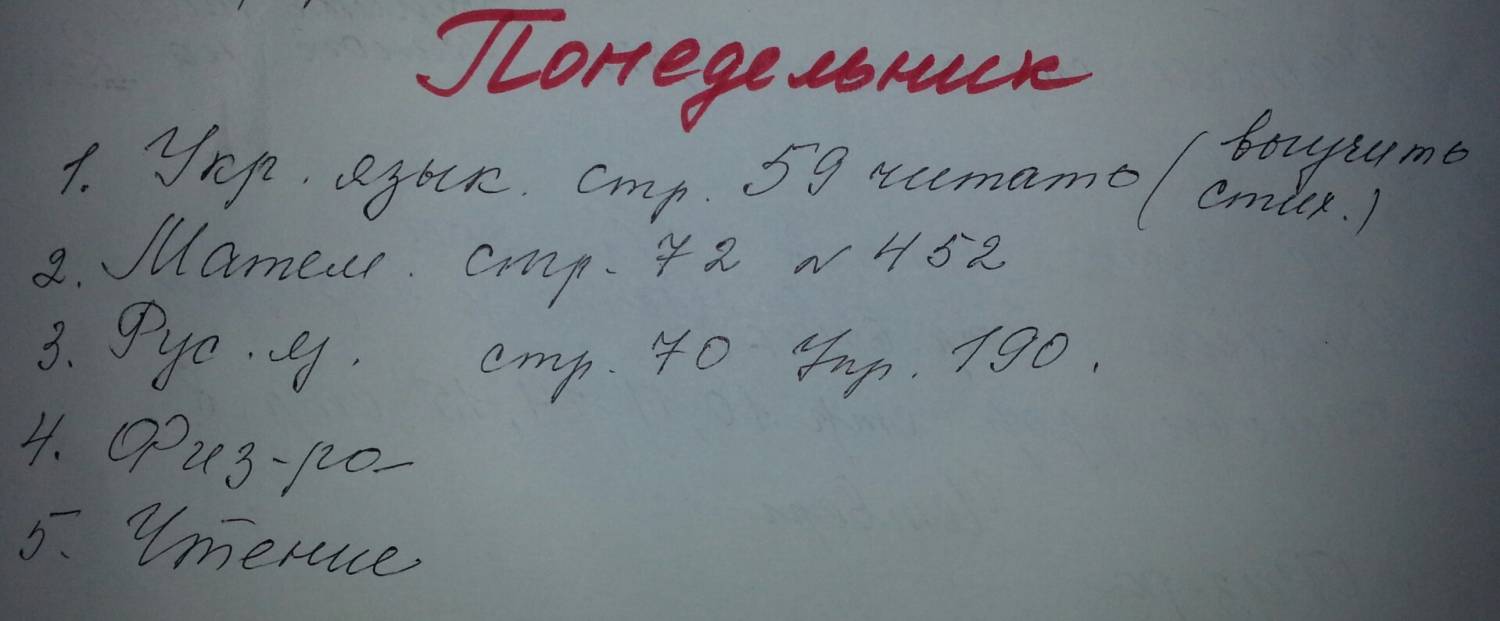 Понедельник
1. Укр. язык. стр. 59 читать (выучить
стих.)
2. Матем. стр. 72 № 452
3. Рус. я. стр. 70 Упр. 190.
4. Физ-ра
5. Чтение